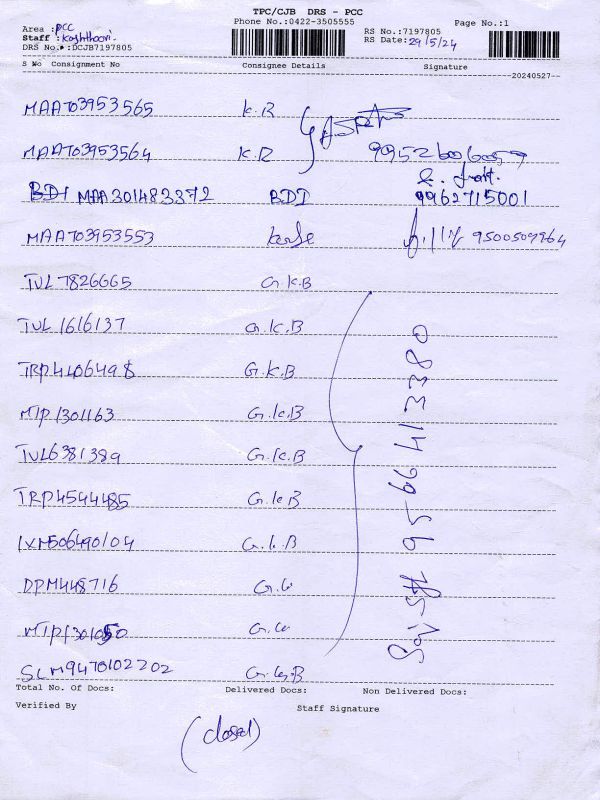 TPC/CJB DRS - PCC
Phone No.:0422-3505555 Page No.:1
Area : PCC
Staff : RS No.:7197805
DRS No.#:DCJB7197805 RS Date: 29/5/24
S No Consignment No Consignee Details Signature
20240527
MAA703953565 K.R
MAA703953564 K.R
BDT MAA301483372 BDT 9962715001
MAA703953553 9500509964
TUL7826665 G.K.B
TUL1616137 G.K.B
TRP4406498 G.K.B
MTP1301163 G.K.B
TUL6381389 G.K.B
TRP4544485 G.K.B
IXM506490104 G.K.B
DPM448716 G.K
MTP1301050 G.K
SLM9470102202 G.K.B
9566413380
Total No. Of Docs: Delivered Docs: Non Delivered Docs:
Verified By Staff Signature
(closed)